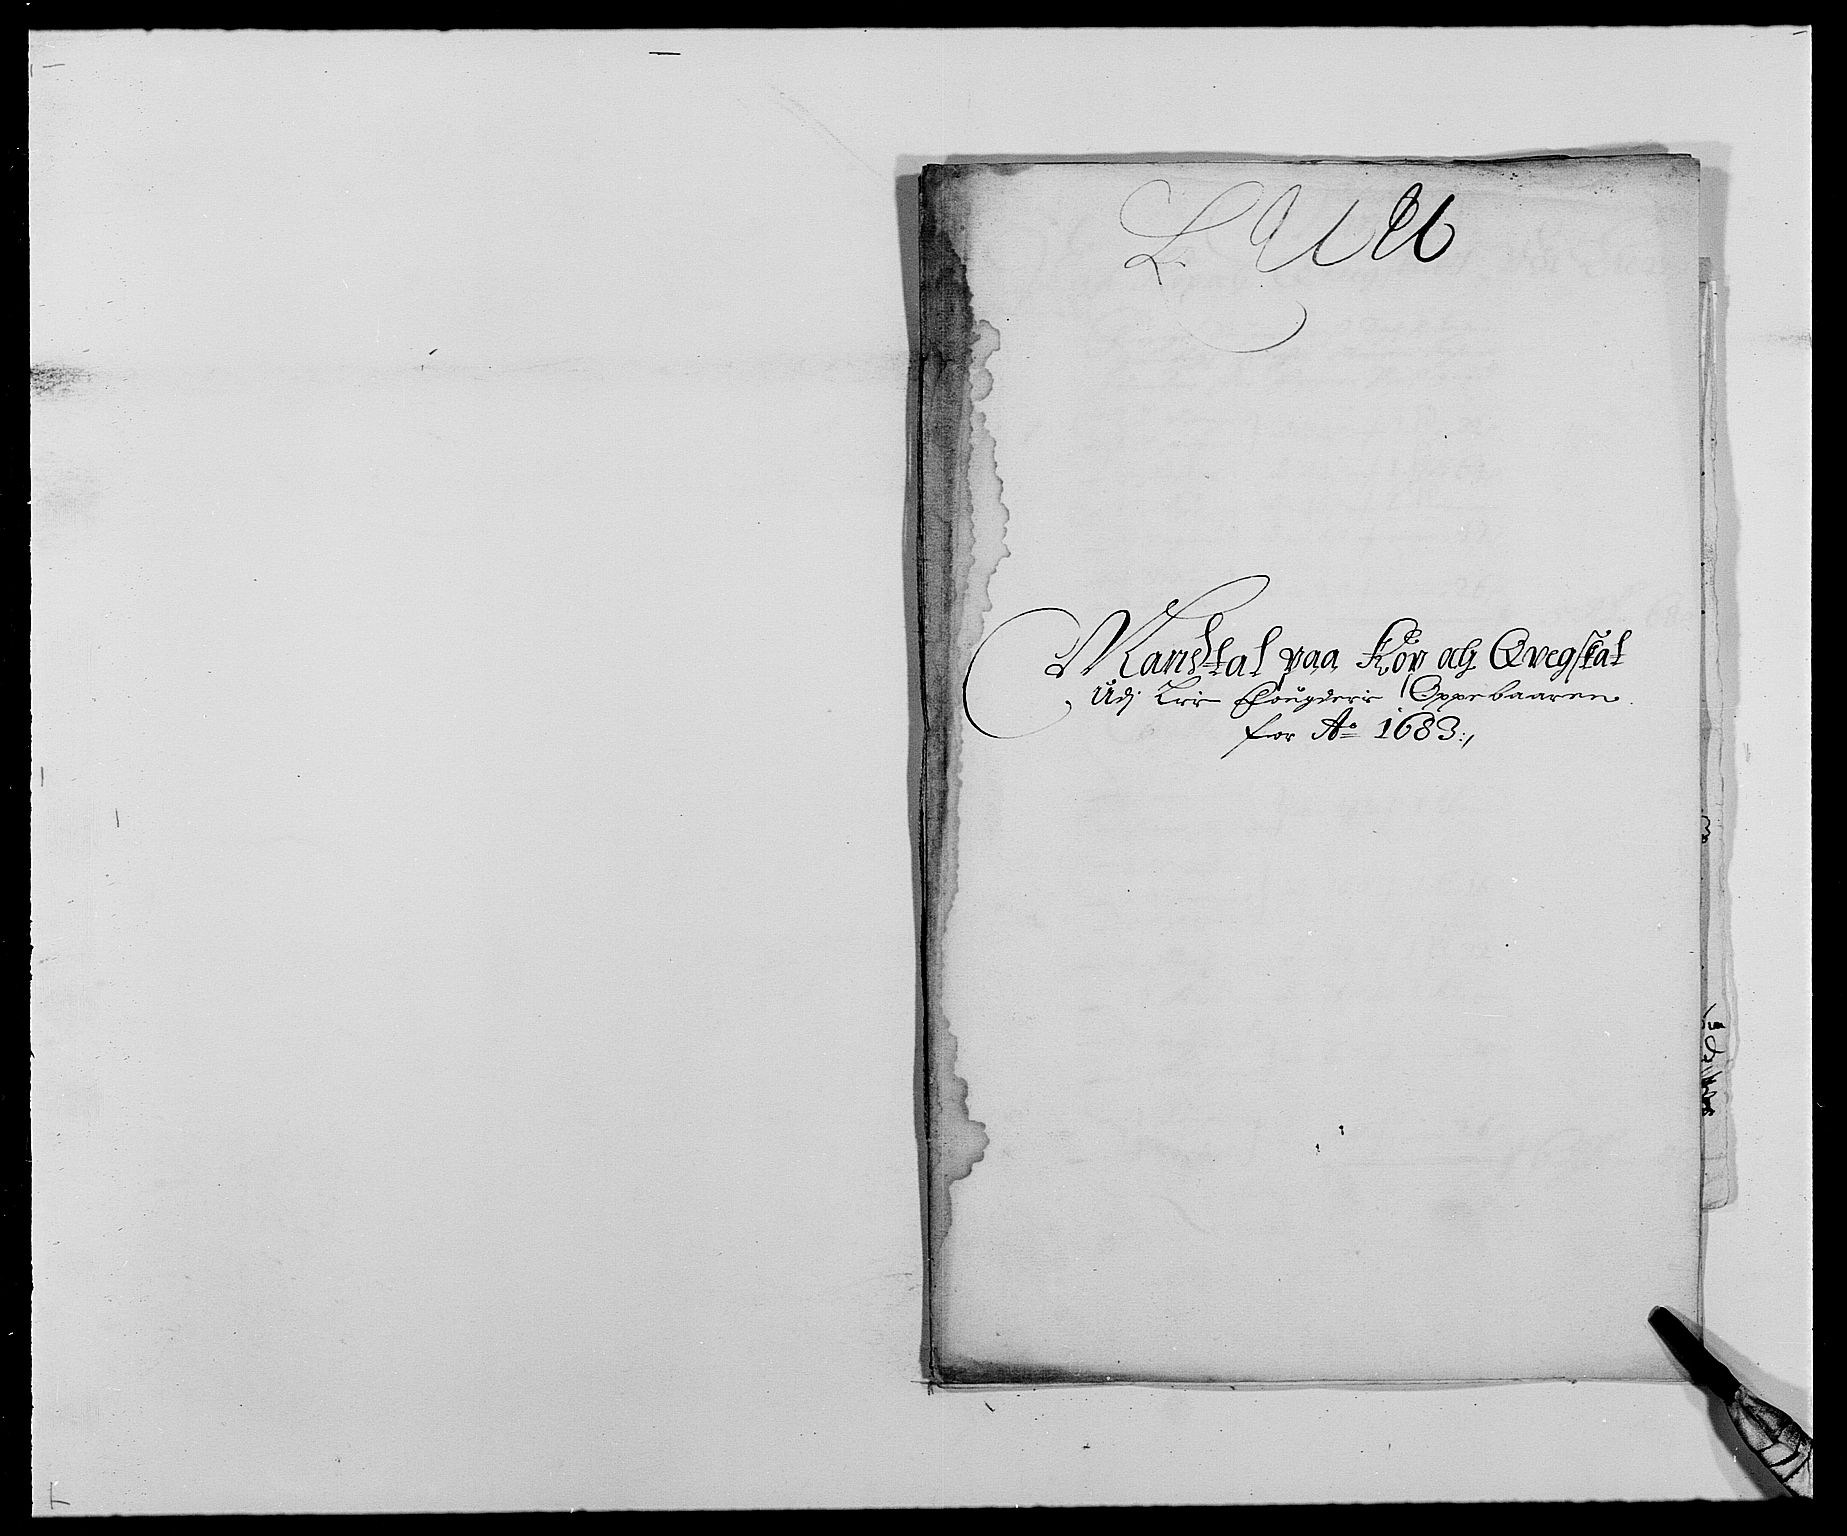 Mandtal paa Kop og Qvegskat
Udj Lier Fougderie Oppebaaren
for Ao 1683